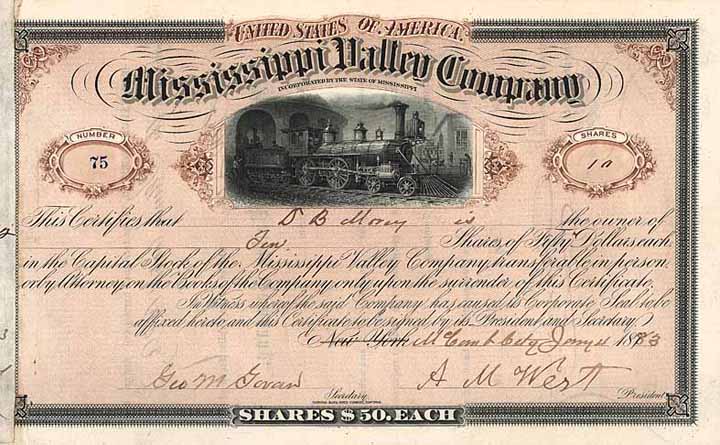 UNITED STATES OF AMERICA
Mississippi Valley Company
INCORPORATED BY THE STATE OF MISSISSIPPI
NUMBER
75
SHARES
10
This Certifies that D B Morey is the owner of
Ten Shares of Fifty Dollars each
in the Capital Stock of the Mississippi Valley Company, transferable in person
or by Attorney, on the Books of the Company only upon the surrender of this Certificate.
In Witness whereof the said Company has caused its Corporate Seal to be
affixed hereto, and this Certificate to be signed by its President and Secretary.
New York McComb City Jany 4 1883
Geo M Govan A M West
Secretary. President.
SHARES $50. EACH